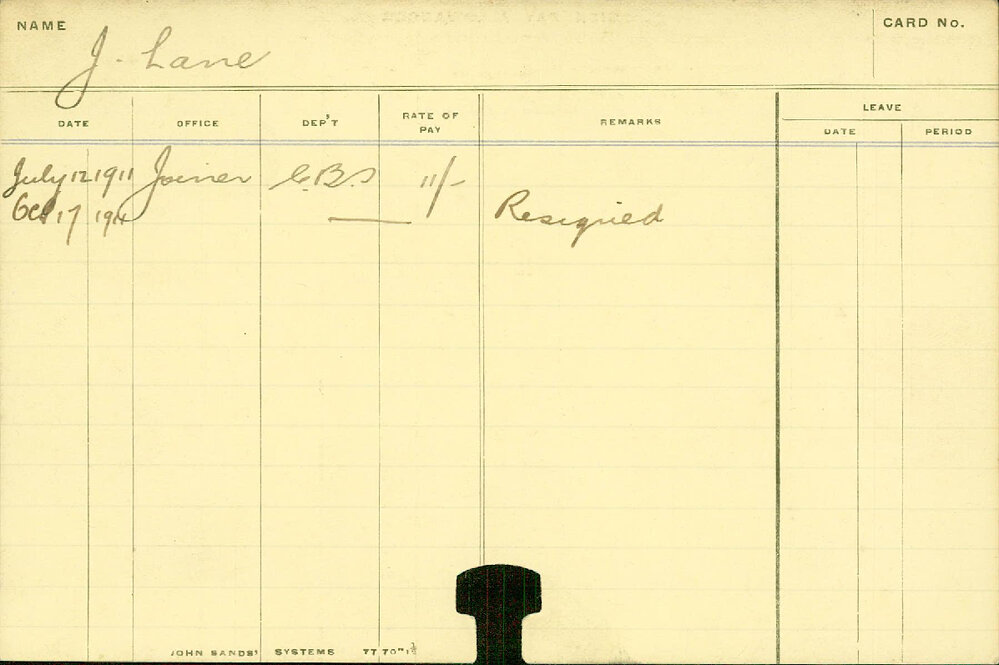 NAME
CARD No.
J. Lane
LEAVE
DATE OFFICE DEP'T RATE OF PAY REMARKS DATE PERIOD
July 12 1911 Joiner C.B.S 11/-
Oct 17 1911 Resigned
JOHN SANDS' SYSTEMS